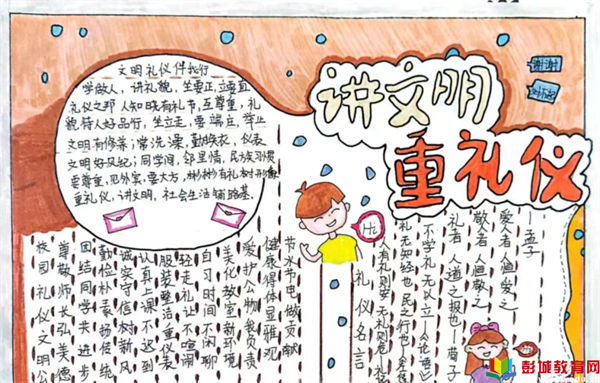 文明礼仪伴我行
学做人，讲礼貌，坐要正，立要直
礼仪之邦人知晓有礼节，互尊重，礼
貌待人好品行，坐立走，要端庄，举止
文明有修养；常洗澡，勤换衣，仪表
文明好风纪；同学间，邻里情，民族习惯
要尊重，见外宾，要大方，彬彬有礼树形象
重礼仪，讲文明，社会生活铺路基.
讲文明
重礼仪
谢谢
对不起
Hi
——孟子
爱人者 人恒爱之
敬人者 人恒敬之
礼者 人道之极也——荀子
不学礼 无以立——《论语》
民之行也
人有礼则安 无礼则危
礼仪名言
节水节电做贡献
健康得体显雅观
爱护公物我负责
美化教室新环境
自习时间不闲聊
轻走礼让不喧闹
服装整洁重仪表
认真上课不迟到
诚实守信树新风
勤俭朴素扬传统
团结同学共进步
尊敬师长弘美德
校园礼仪文明公
彭城教育网